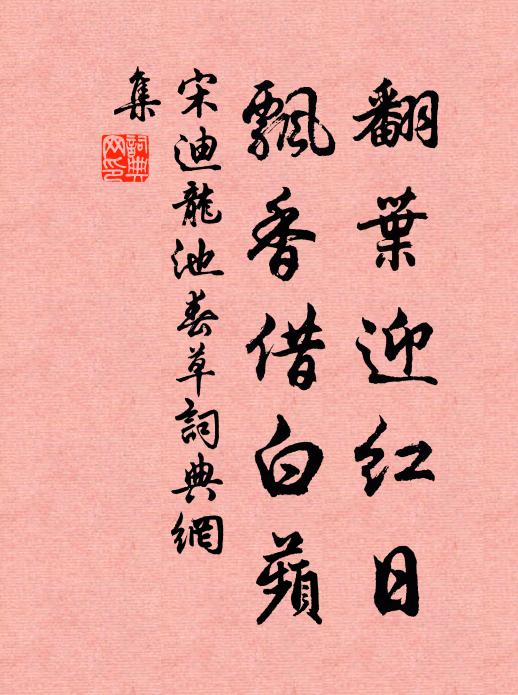 翻葉迎紅日
飄香借白蘋
宋迪龍池春草詞典網
集
詞典
网印